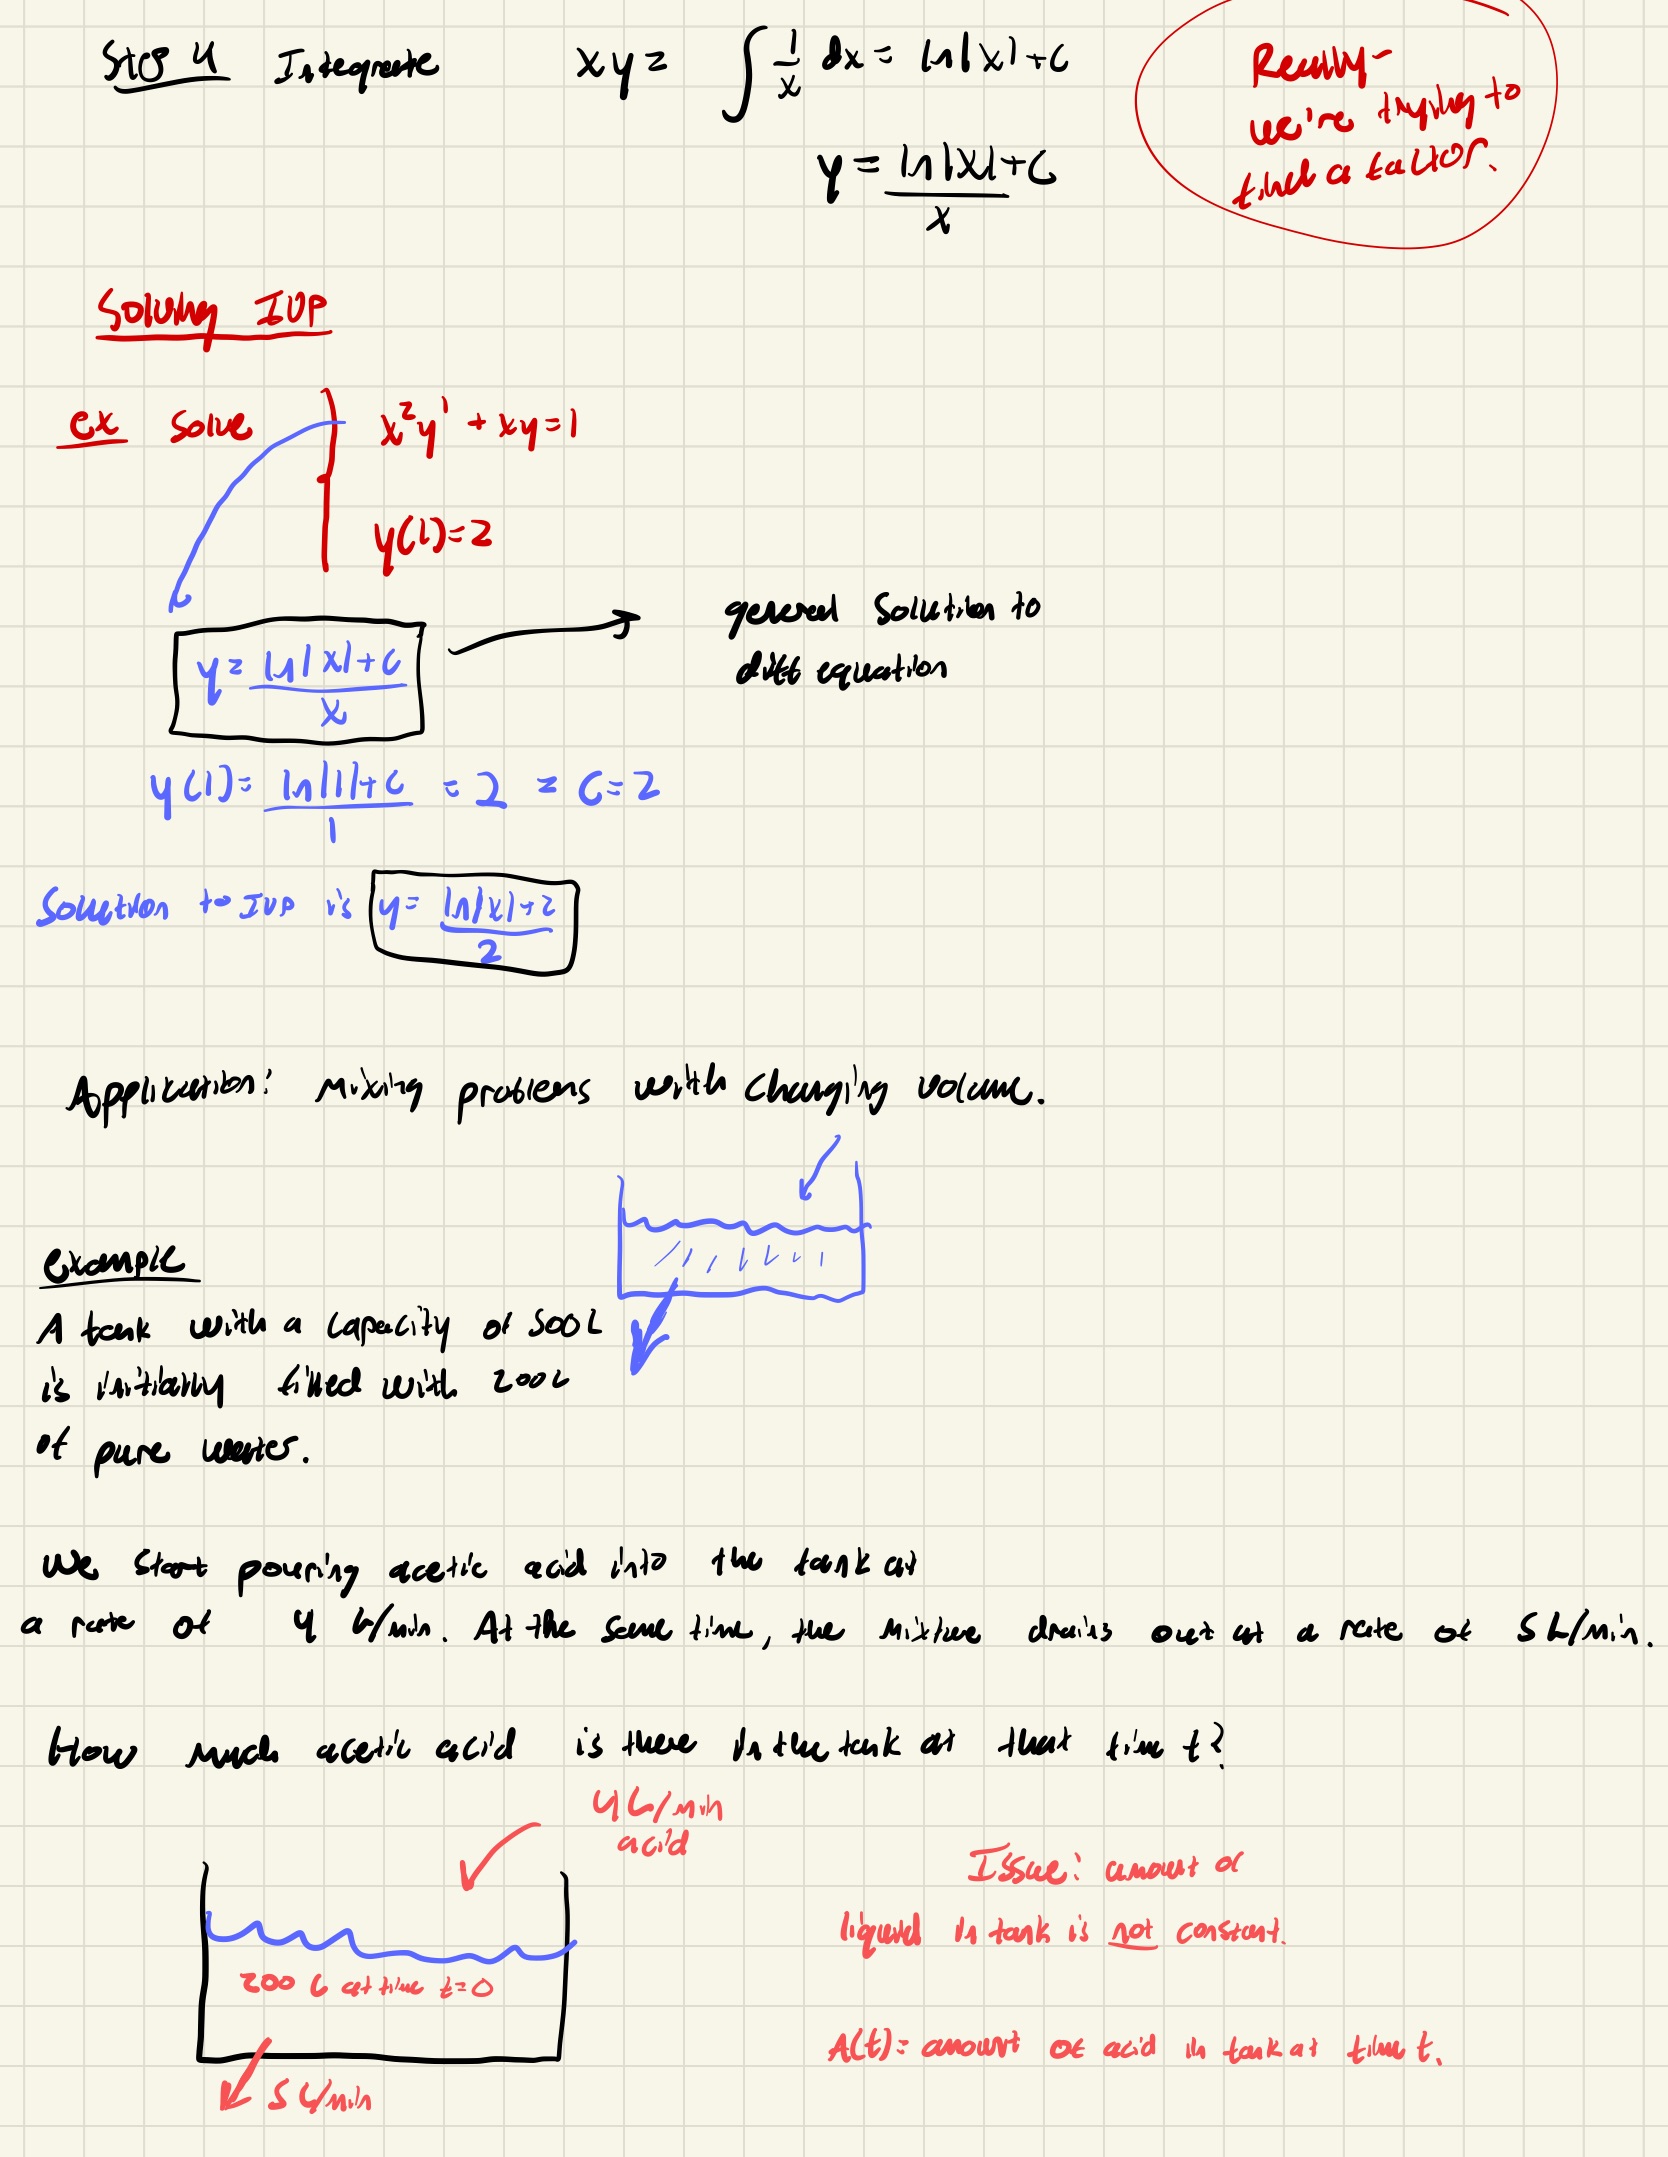 Step 4 Integrate xy = ∫ 1/x dx = ln|x|+C
y = ln|x|+C / x
Really-
we're trying to
find a factor.
Solving IVP
ex Solve x²y' + xy = 1
y(1)=2
y = ln|x|+C / x
general solution to
diff equation
y(1) = ln|1|+C / 1 = 2 = C=2
Solution to IVP is y = ln|x|+2 / 2
Application: Mixing problems with changing volume.
example
A tank with a capacity of 500L
is initially filled with 200L
of pure water.
We start pouring acetic acid into the tank at
a rate of 4 L/min. At the same time, the mixture drains out at a rate of 5 L/min.
How much acetic acid is there in the tank at that time t?
4L/min
acid
Issue: amount of
liquid in tank is not constant.
200 L at time t=0
A(t)= amount of acid in tank at time t.
5 L/min